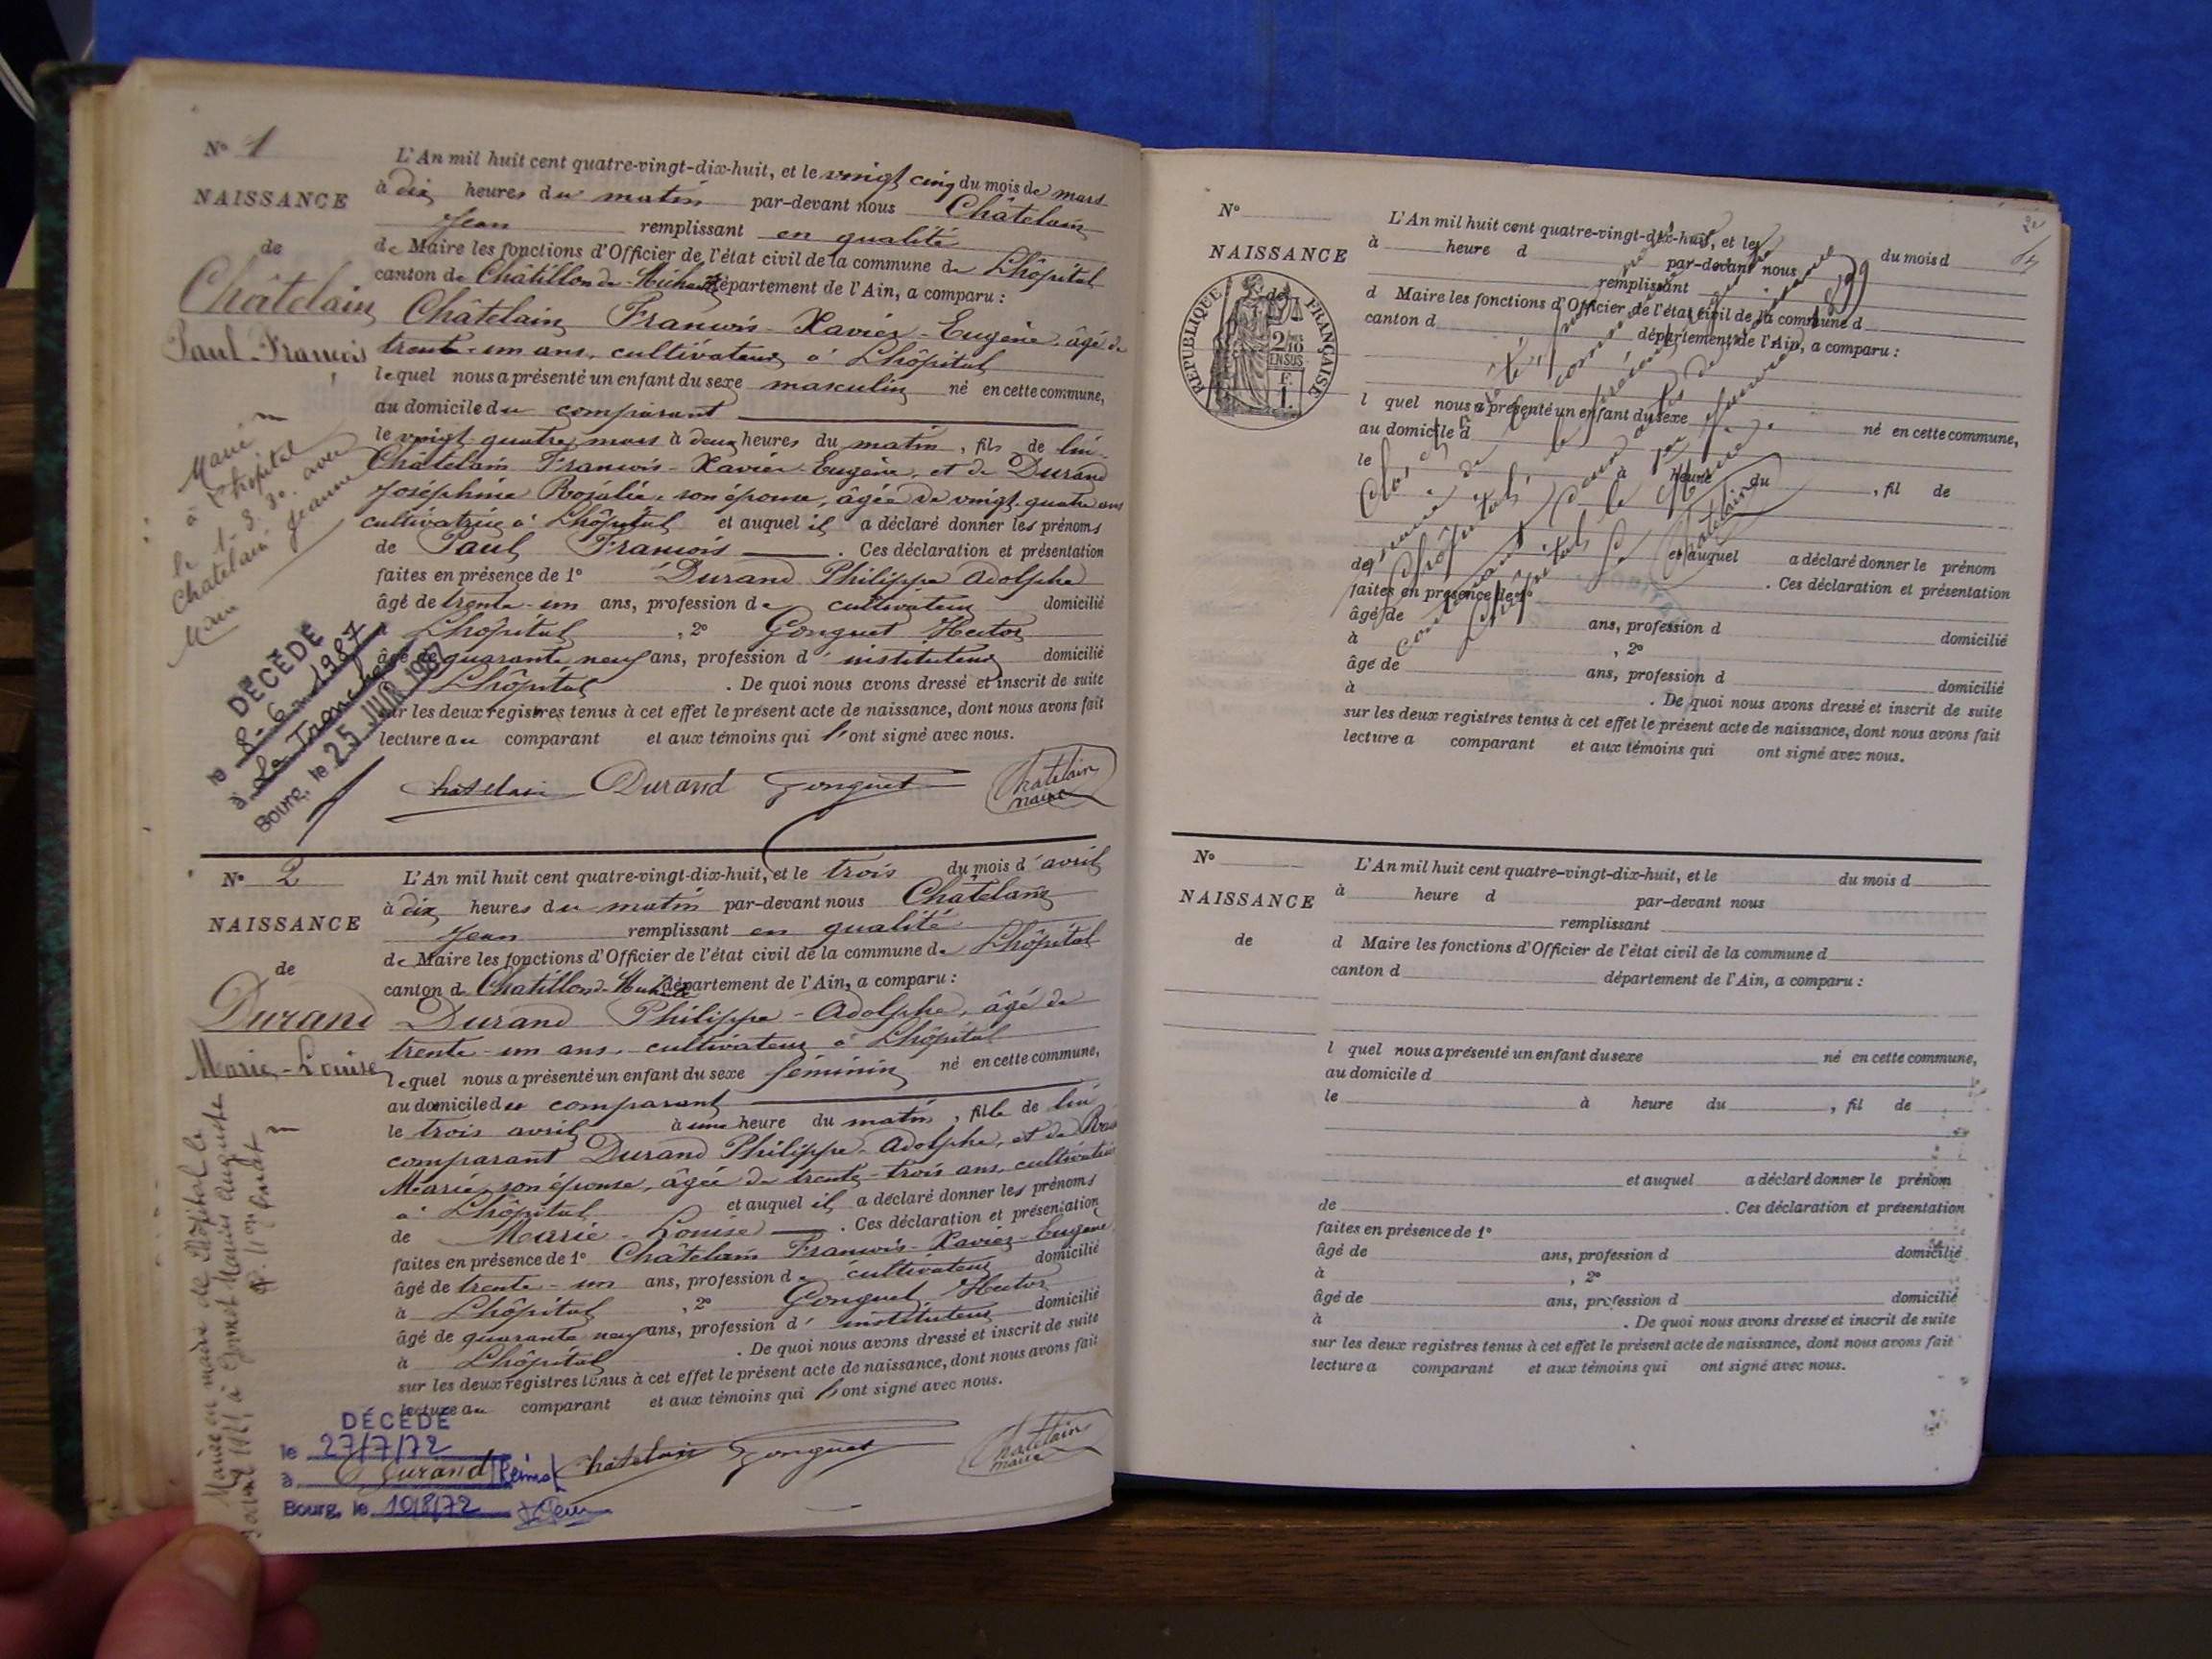 N° 1
NAISSANCE
de
Châtelain
Paul-François
L'An mil huit cent quatre-vingt-dix-huit, et le vingt cinq du mois de mars
à dix heures du matin par-devant nous Châtelain
Jean remplissant en qualité
de Maire les fonctions d'Officier de l'état civil de la commune de Lhôpital
canton de Châtillon-de-Michaille département de l'Ain, a comparu :
Châtelain François-Xavier-Eugène, âgé de
trente-un ans, cultivateur à Lhôpital
lequel nous a présenté un enfant du sexe masculin né en cette commune,
au domicile du comparant
le vingt-quatre mars à deux heures du matin, fils de lui
Châtelain François-Xavier-Eugène, et de Durand
Joséphine Rosalie, son épouse, âgée de vingt-quatre ans
cultivatrice à Lhôpital et auquel il a déclaré donner les prénoms
de Paul François . Ces déclaration et présentation
faites en présence de 1° Durand Philippe Adolphe
âgé de trente-un ans, profession de cultivateur domicilié
Lhôpital , 2° Gonguet Hector
âgé de quarante neuf ans, profession d'instituteur domicilié
Lhôpital . De quoi nous avons dressé et inscrit de suite
sur les deux registres tenus à cet effet le présent acte de naissance, dont nous avons fait
lecture au comparant et aux témoins qui l'ont signé avec nous.
Chatelain Durand Gonguet Chatelain
maire
Marié
à Lhôpital
le 1-3.30. avec
Chatelain Jeanne
Marie
DÉCÉDÉ
le 8-6-1987
à La Tronche
Bourg, le 25 JUIN 1987
N° 2
NAISSANCE
de
Durand
Marie-Louise
L'An mil huit cent quatre-vingt-dix-huit, et le trois du mois d'avril
à dix heures du matin par-devant nous Châtelain
Jean remplissant en qualité
de Maire les fonctions d'Officier de l'état civil de la commune de Lhôpital
canton de Chatillon-de-Michaille département de l'Ain, a comparu :
Durand Philippe-Adolphe, âgé de
trente-un ans, cultivateur à Lhôpital
lequel nous a présenté un enfant du sexe féminin né en cette commune,
au domicile du comparant
le trois avril à une heure du matin, fille de lui
comparant Durand Philippe-Adolphe, et de
Marie, son épouse, âgée de trente-trois ans, cultivatrice
à Lhôpital et auquel il a déclaré donner les prénoms
de Marie-Louise . Ces déclaration et présentation
faites en présence de 1° Châtelain François-Xavier-Eugène
âgé de trente-un ans, profession de cultivateur domicilié
à Lhôpital , 2° Gonguet Hector
âgé de quarante neuf ans, profession d'instituteur domicilié
à Lhôpital . De quoi nous avons dressé et inscrit de suite
sur les deux registres tenus à cet effet le présent acte de naissance, dont nous avons fait
lecture au comparant et aux témoins qui l'ont signé avec nous.
Chatelain Gonguet Chatelain
maire
Mariée en mairie de Lhôpital le
à Marius Auguste
DÉCÉDÉ
le 27/7/72
à
Bourg, le 10/8/72
N°
NAISSANCE
de
RÉPUBLIQUE FRANÇAISE
2/10
EN SUS
F.
1.
L'An mil huit cent quatre-vingt-dix-huit, et le du mois d
à heure d par-devant nous
remplissant
d Maire les fonctions d'Officier de l'état civil de la commune d
canton d département de l'Ain, a comparu :
l quel nous a présenté un enfant du sexe né en cette commune,
au domicile d
le à heure du , fil de
et auquel a déclaré donner le prénom
de . Ces déclaration et présentation
faites en présence de 1°
âgé de ans, profession d domicilié
à , 2°
âgé de ans, profession d domicilié
à . De quoi nous avons dressé et inscrit de suite
sur les deux registres tenus à cet effet le présent acte de naissance, dont nous avons fait
lecture a comparant et aux témoins qui ont signé avec nous.
Clos et
1899
Chatelain
N°
NAISSANCE
de
L'An mil huit cent quatre-vingt-dix-huit, et le du mois d
à heure d par-devant nous
remplissant
d Maire les fonctions d'Officier de l'état civil de la commune d
canton d département de l'Ain, a comparu :
l quel nous a présenté un enfant du sexe né en cette commune,
au domicile d
le à heure du , fil de
et auquel a déclaré donner le prénom
de . Ces déclaration et présentation
faites en présence de 1°
âgé de ans, profession d domicilié
à , 2°
âgé de ans, profession d domicilié
à . De quoi nous avons dressé et inscrit de suite
sur les deux registres tenus à cet effet le présent acte de naissance, dont nous avons fait
lecture a comparant et aux témoins qui ont signé avec nous.